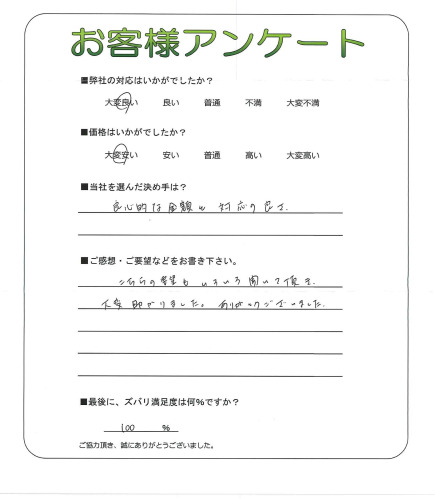 お客様アンケート
■弊社の対応はいかがでしたか？
大変良い 良い 普通 不満 大変不満
■価格はいかがでしたか？
大変安い 安い 普通 高い 大変高い
■当社を選んだ決め手は？
良心的な金額と対応の良さ。
■ご感想・ご要望などをお書き下さい。
こちらの希望もいろいろ聞いて頂き
大変助かりました。ありがとうございました。
■最後に、ズバリ満足度は何％ですか？
100 ％
ご協力頂き、誠にありがとうございました。